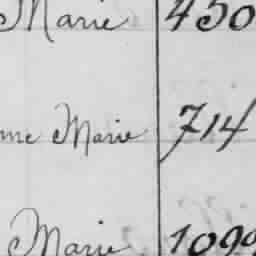 Marie 450
Marie 714
Marie 109